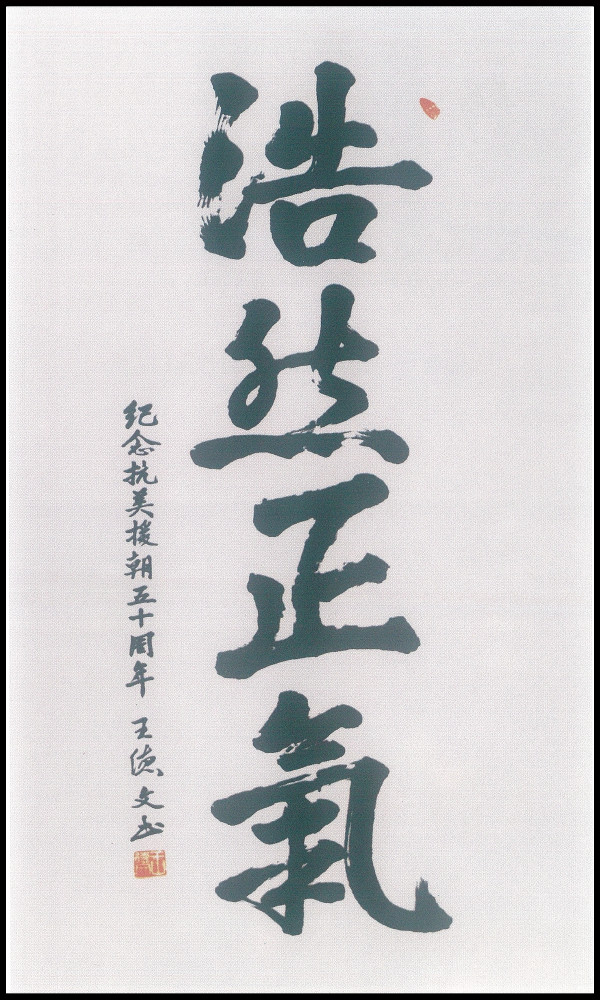 浩然正氣
纪念抗美援朝五十周年 王德文书